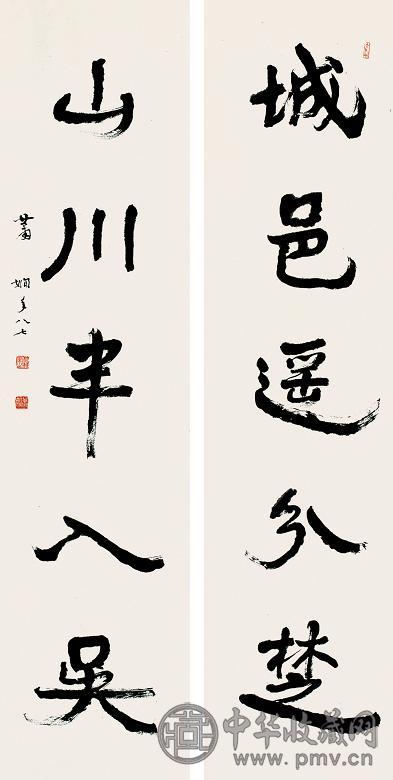 城邑遥分楚
山川半入吴
萧娴年八七
中华收藏网
www.pmv.cn